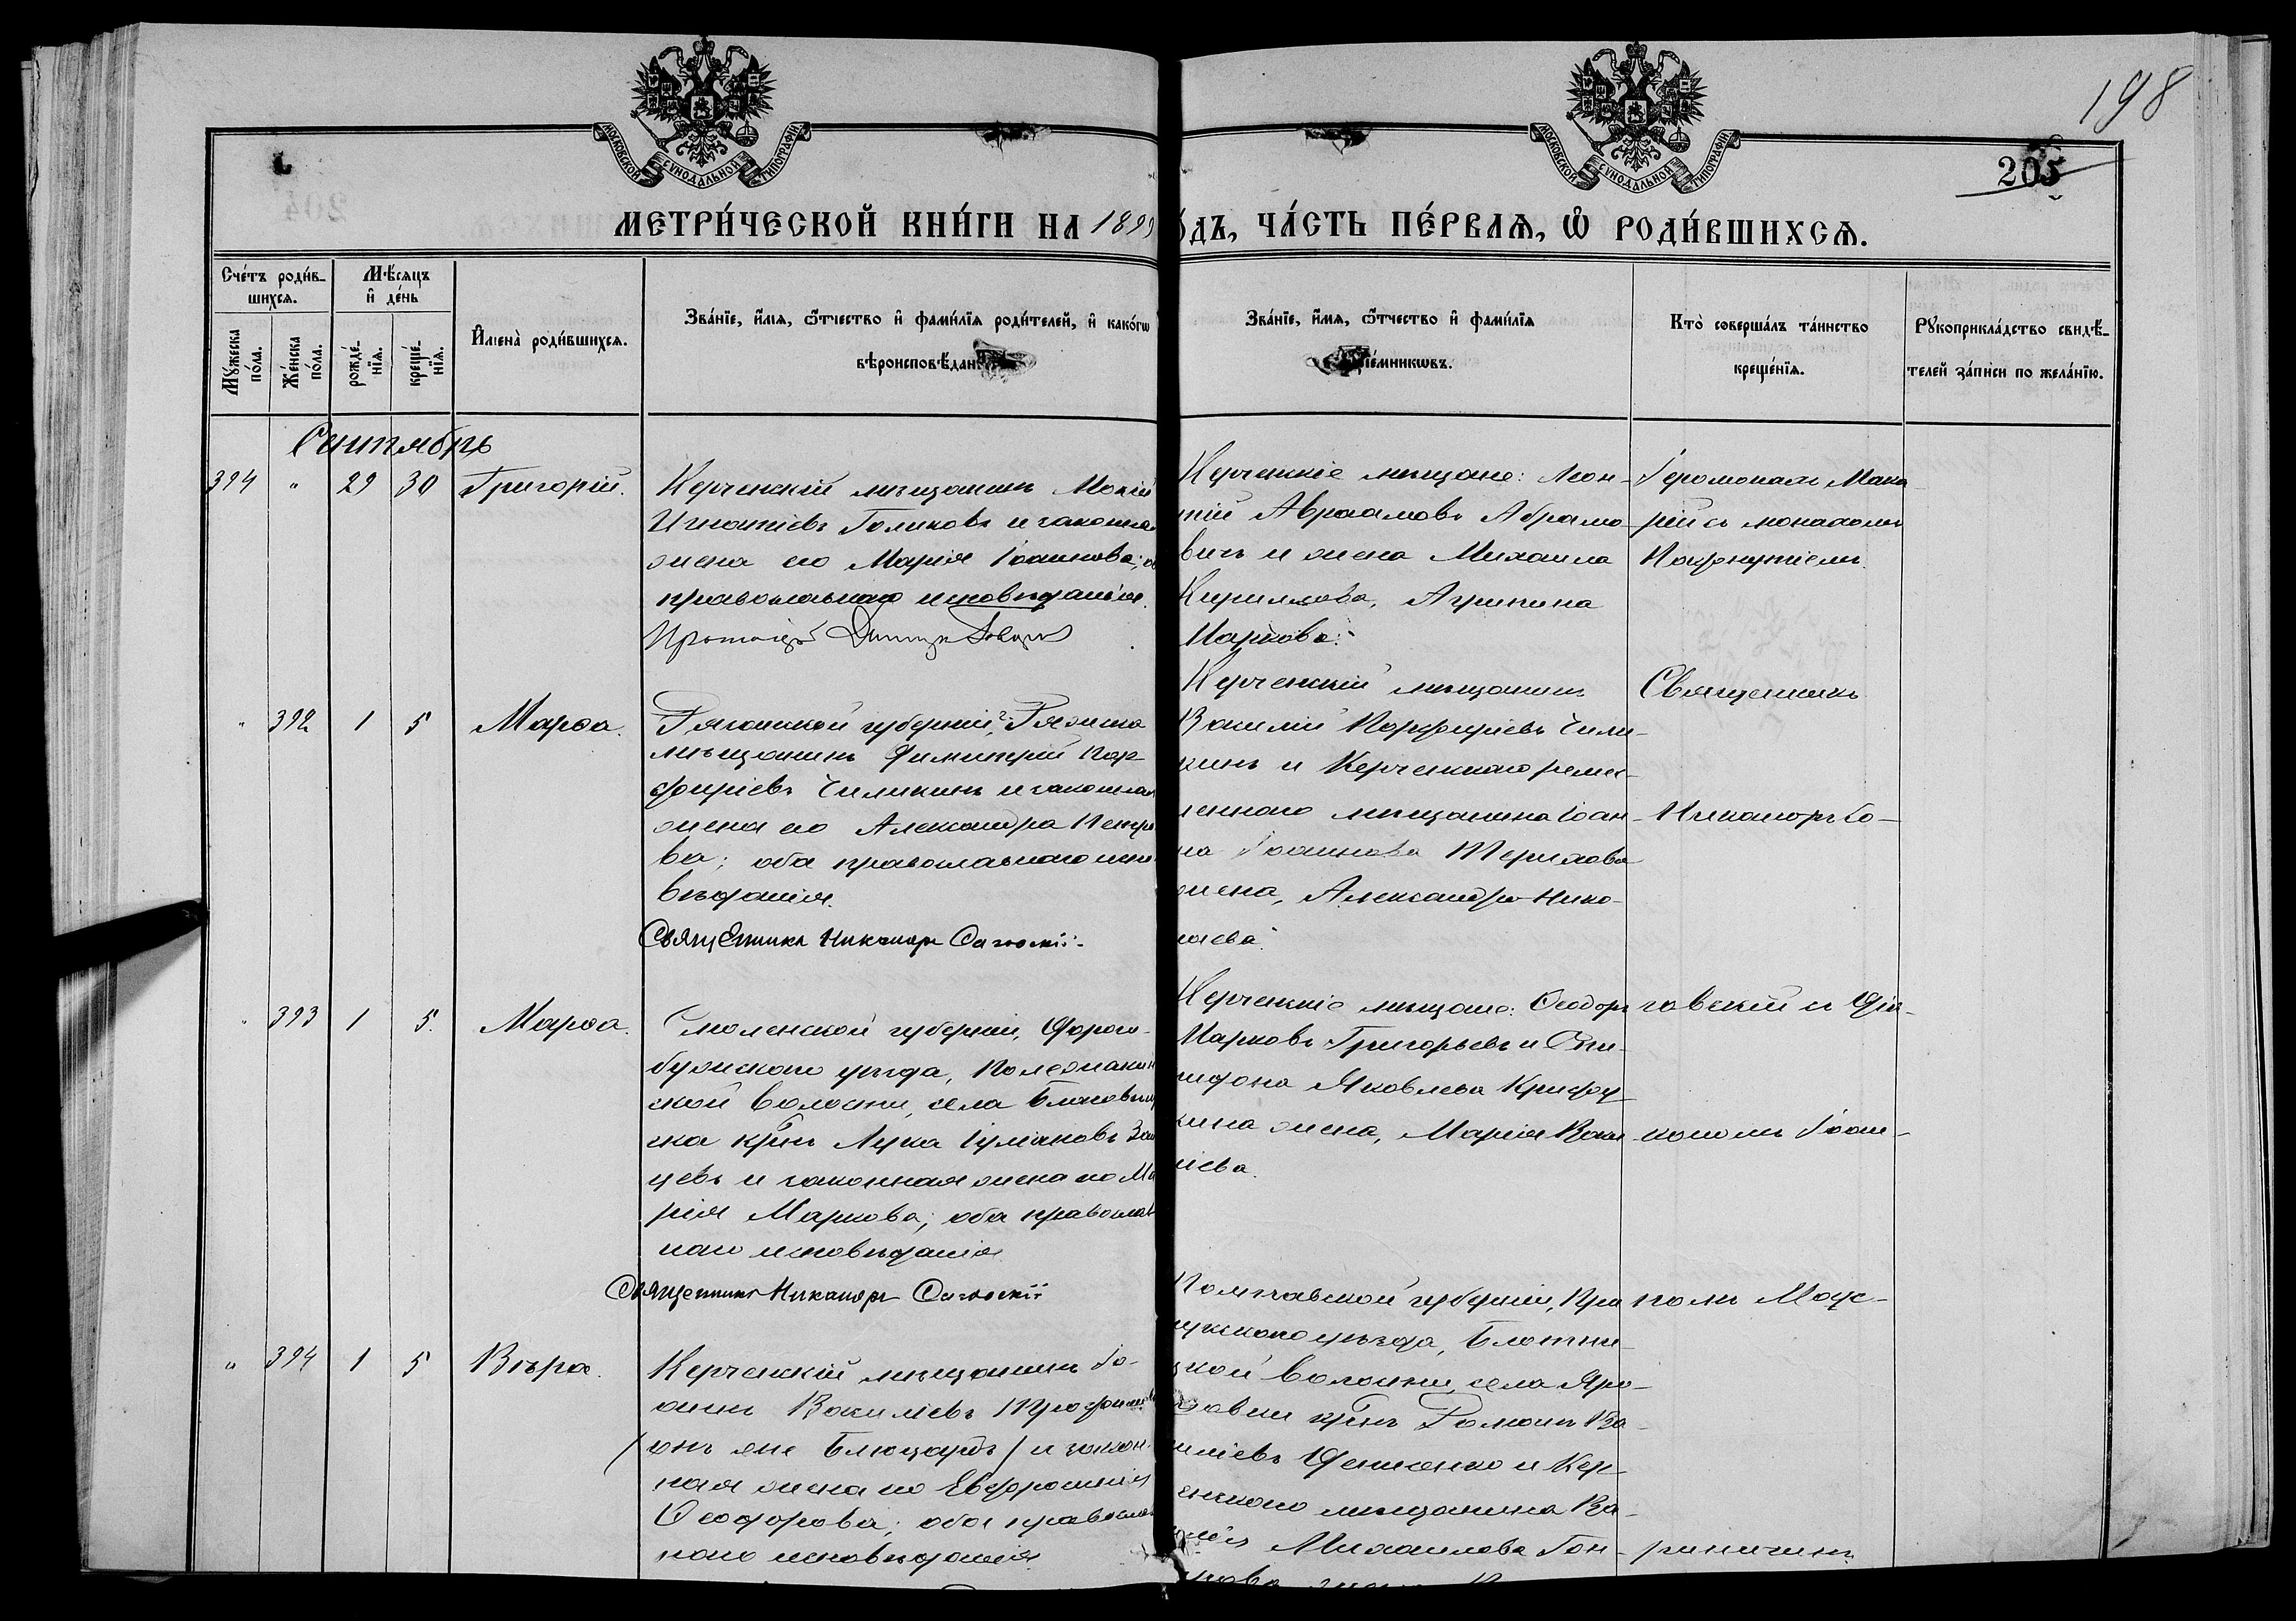 198
205
МОСКОВСКОЙ СѴНОДАЛЬНОЙ ТИПОГРАФІИ
МОСКОВСКОЙ СѴНОДАЛЬНОЙ ТИПОГРАФІИ
МЕТРИ́ЧЕСКОЙ КНИ́ГИ НА 1899
о́дъ, ЧА́СТЬ ПЕ́РВАѦ, Ѽ РОДИ́ВШИХСѦ.
Сче́тъ роди́в-
шихсѧ.
Мꙋжеска по́ла.
Же́нска по́ла.
Мѣ́сѧцъ
и҆ де́нь
рожде́-нїѧ.
креще́-нїѧ.
И҆мена̀ роди́вшихсѧ.
Зва́нїе, и҆́мѧ, ѻ҆́тчество и҆ фами́лїѧ роди́телей, и҆ како́гѡ
вѣроисповѣ́дан
Зва́нїе, и҆́мѧ, ѻ҆́тчество и҆ фами́лїѧ
їе́мникѡвъ.
Кто̀ соверша́лъ та́инство
креще́нїѧ.
Рꙋкоприкла́дство свидѣ́-
телей за́писи по жела́нїю.
Сентябрь
394 " 29 30 Григорій.
Керченскій мѣщанинъ Мокій
Игнатіевъ Голиковъ и законная
жена его Марія Іоаннова; об
православнаго исповѣданія.
Керченскіе мѣщане: Леон-
тій Авраамовъ Абрамо-
вичъ и жена Михаила
Кирилова, Агрипина
Маркова.
Іеромонахъ Мака-
рій съ монахомъ
Пафнутіемъ.
" 392 1 5 Марѳа.
губерніи,
мѣщанинъ Димитрій Пор-
фиріевъ Чиликинъ и законная
жена его Александра Петро
ва; оба православнаго испо
вѣданія.
Священникъ Никаноръ
Керченскій мѣщанинъ
Василій Порфиріевъ Чили-
кинъ и Керченскаго ремес-
леннаго мѣщанина Іоан-
на Іоаннова Терихова
жена, Александра Нико-
лаева.
Священникъ
Никаноръ Со-
" 393 1 5. Марѳа.
Смоленской губерніи, Дорого-
бужскаго уѣзда,
ской волости, села Благовѣщ
ска крнъ Лука Іуліановъ Зай
цевъ и законная жена его Ма
рія Маркова; оба православ
наго исповѣданія
Священникъ Никаноръ
Керченскіе мѣщане: Ѳеодоръ
Марковъ Григорьевъ и Спи-
ридона Яковлева
кина жена, Марія Васи
ліева.
говскій съ Діа-
кономъ Іоан-
" 394 1 5 Вѣра.
Керченскій мѣщанинъ Іо-
аннъ Василіевъ Трофимовъ
(онъ же Блюцардъ) и закон-
ная жена его Евфросинія
Ѳеодорова; оба православ
наго исповѣданія.
Полтавской губерніи, При
лукскаго уѣзда,
цкой волости, села Яро-
славки крнъ Романъ Ва-
силіевъ Денисенко и Кер-
ченскаго мѣщанина Ва-
силія Михаилова Гон-
номъ